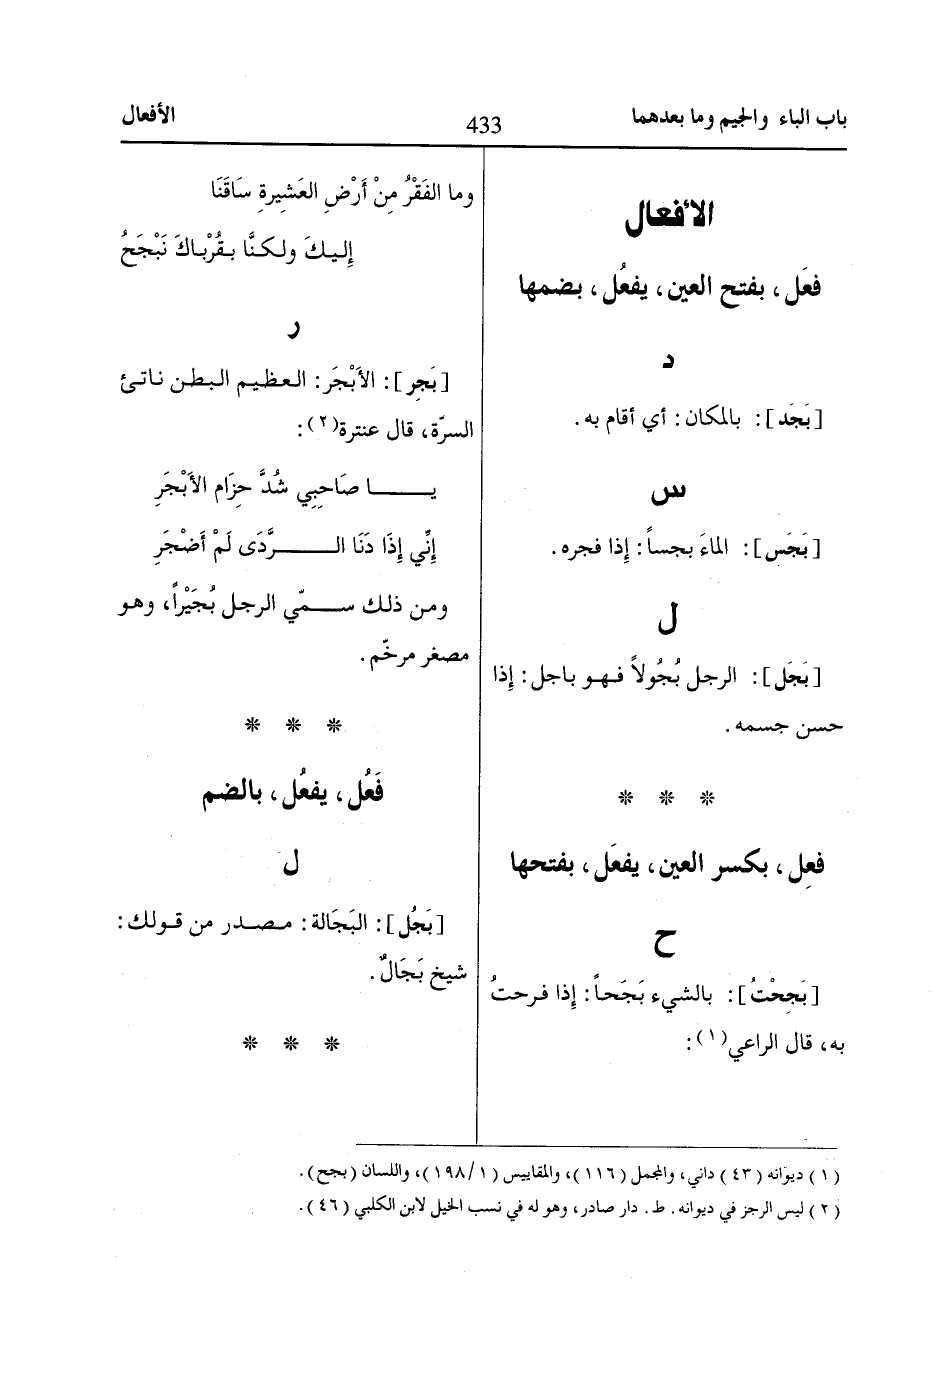 باب الباء والجيم وما بعدهما
433
الأفعال
الأفعال
فعَل، بفتح العين، يفعُل، بضمها
د
[بَجَد]: بالمكان: أي أقام به.
س
[بَجَس]: الماءَ بجساً: إذا فجره.
ل
[بَجَل]: الرجل بُجُولاً فهو باجل: إذا
حسن جسمه.
* * *
فعِل، بكسر العين، يفعَل، بفتحها
ح
[بَجِحْتُ]: بالشيء بَجَحاً: إذا فرحتُ
به، قال الراعي(١):
وما الفَقْرُ مِنْ أَرْضِ العَشِيرةِ سَاقَنَا
إليكَ ولكنَّا بقُرْباكَ نَبْجَحُ
ر
[بَجِر]: الأَبْجَر: العظيم البطن ناتئ
السرّة، قال عنترة(٢):
يا صَاحِبِي شُدَّ حِزَام الأَبْجَرِ
إِنِّي إِذَا دَنَا الرَّدَى لَمْ أَضْجَرِ
ومن ذلك سمّي الرجل بُجَيْراً، وهو
مصغر مرخّم.
* * *
فَعُل، يفعُل، بالضم
ل
[بَجُل]: البَجَالة: مصدر من قولك:
شيخ بَجَالٌ.
* * *
(١) ديوانه (٤٣) داني، والمجمل (١١٦)، والمقاييس (١٩٨/١)، واللسان (بجح).
(٢) ليس الرجز في ديوانه. ط. دار صادر، وهو له في نسب الخيل لابن الكلبي (٤٦).